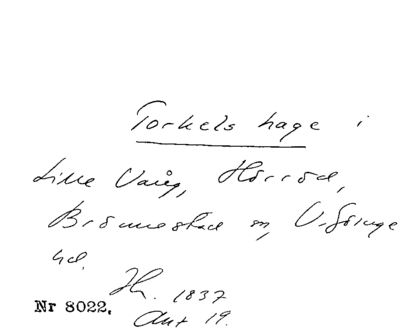 Torkels hage i
Lille Vång, Hörröd,
Brönnestad sn, V. Göinge
hd.
Jh. 1837
Nr 8022.
Ant 19.